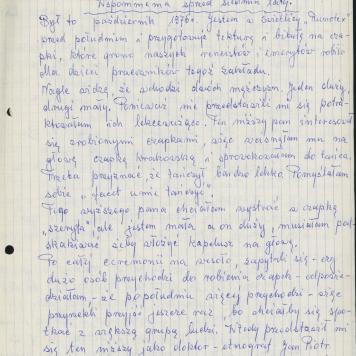 Wspomnienia sprzed siedmiu laty.
Był to październik 1976r. Jestem w świetlicy „Rumotex"
przed południem i przygotowuję tekturę i bibułę na cza-
pki, które grono naszych rencistów i emerytów robiło
dla dzieci pracowników tegoż zakładu.
Nagle widzę, że wchodzi dwóch mężczyzn. Jeden duży,
drugi mały. Ponieważ nie przedstawili mi się potra-
ktowałam ich lekceważąco. Ten niższy pan interesował
się zrobionymi czapkami, więc wcisnęłam mu na
głowę czapkę krakowską i sprowokowałam do tańca.
Trzeba przyznać, że tańczył bardzo lekko. Pomyślałam
sobie „facet umie tańczyć".
Tego wyższego pana chciałam wystroić w czapkę
„szeryfa", ale jestem mała a on duży, musiałam pod-
skakiwać żeby włożyć kapelusz na głowę.
Po całej ceremonii na wesoło, zapytali się - czy
dużo osób przychodzi do robienia czapek - odpowie-
działam - że popołudniu więcej przychodzi - więc
przyrzekli przyjść jeszcze raz, bo chcieliby się spo-
tkać z większą grupą ludzi. Wtedy przedstawił mi
się ten niższy jako doktor - etnograf Jan Piotr